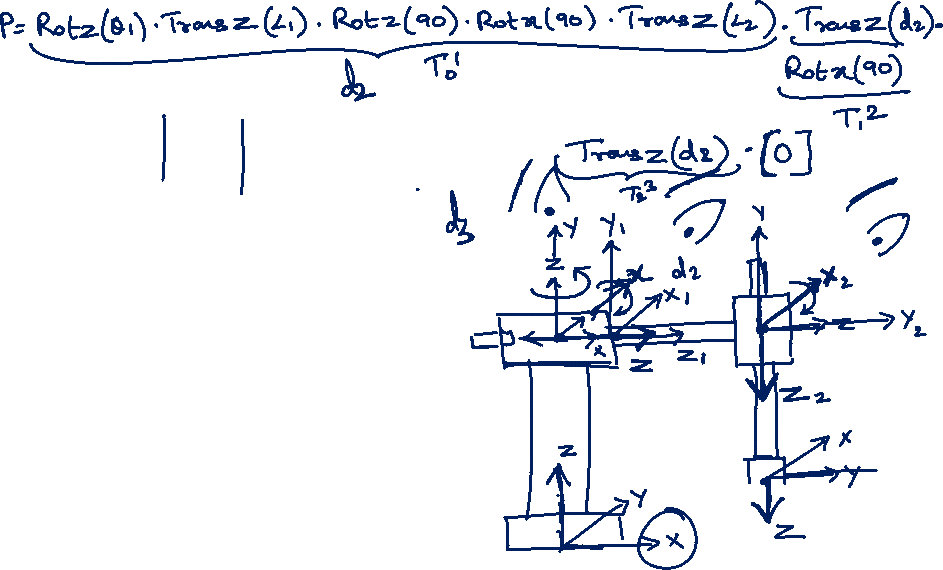 P= Rotz(θ1) · Trans z (L1) · Rot z (90) · Rot x (90) · Trans z (L2) · Trans z (d2) ·
T₀¹
d2
Rot x (90)
T₁²
Trans z (d3) · [0]
T₂³
d3
Y Y1 Y
Z x d2 X2
X1
x Z Z1 Z Y2
Z2
X
Z Y
Y
X Z